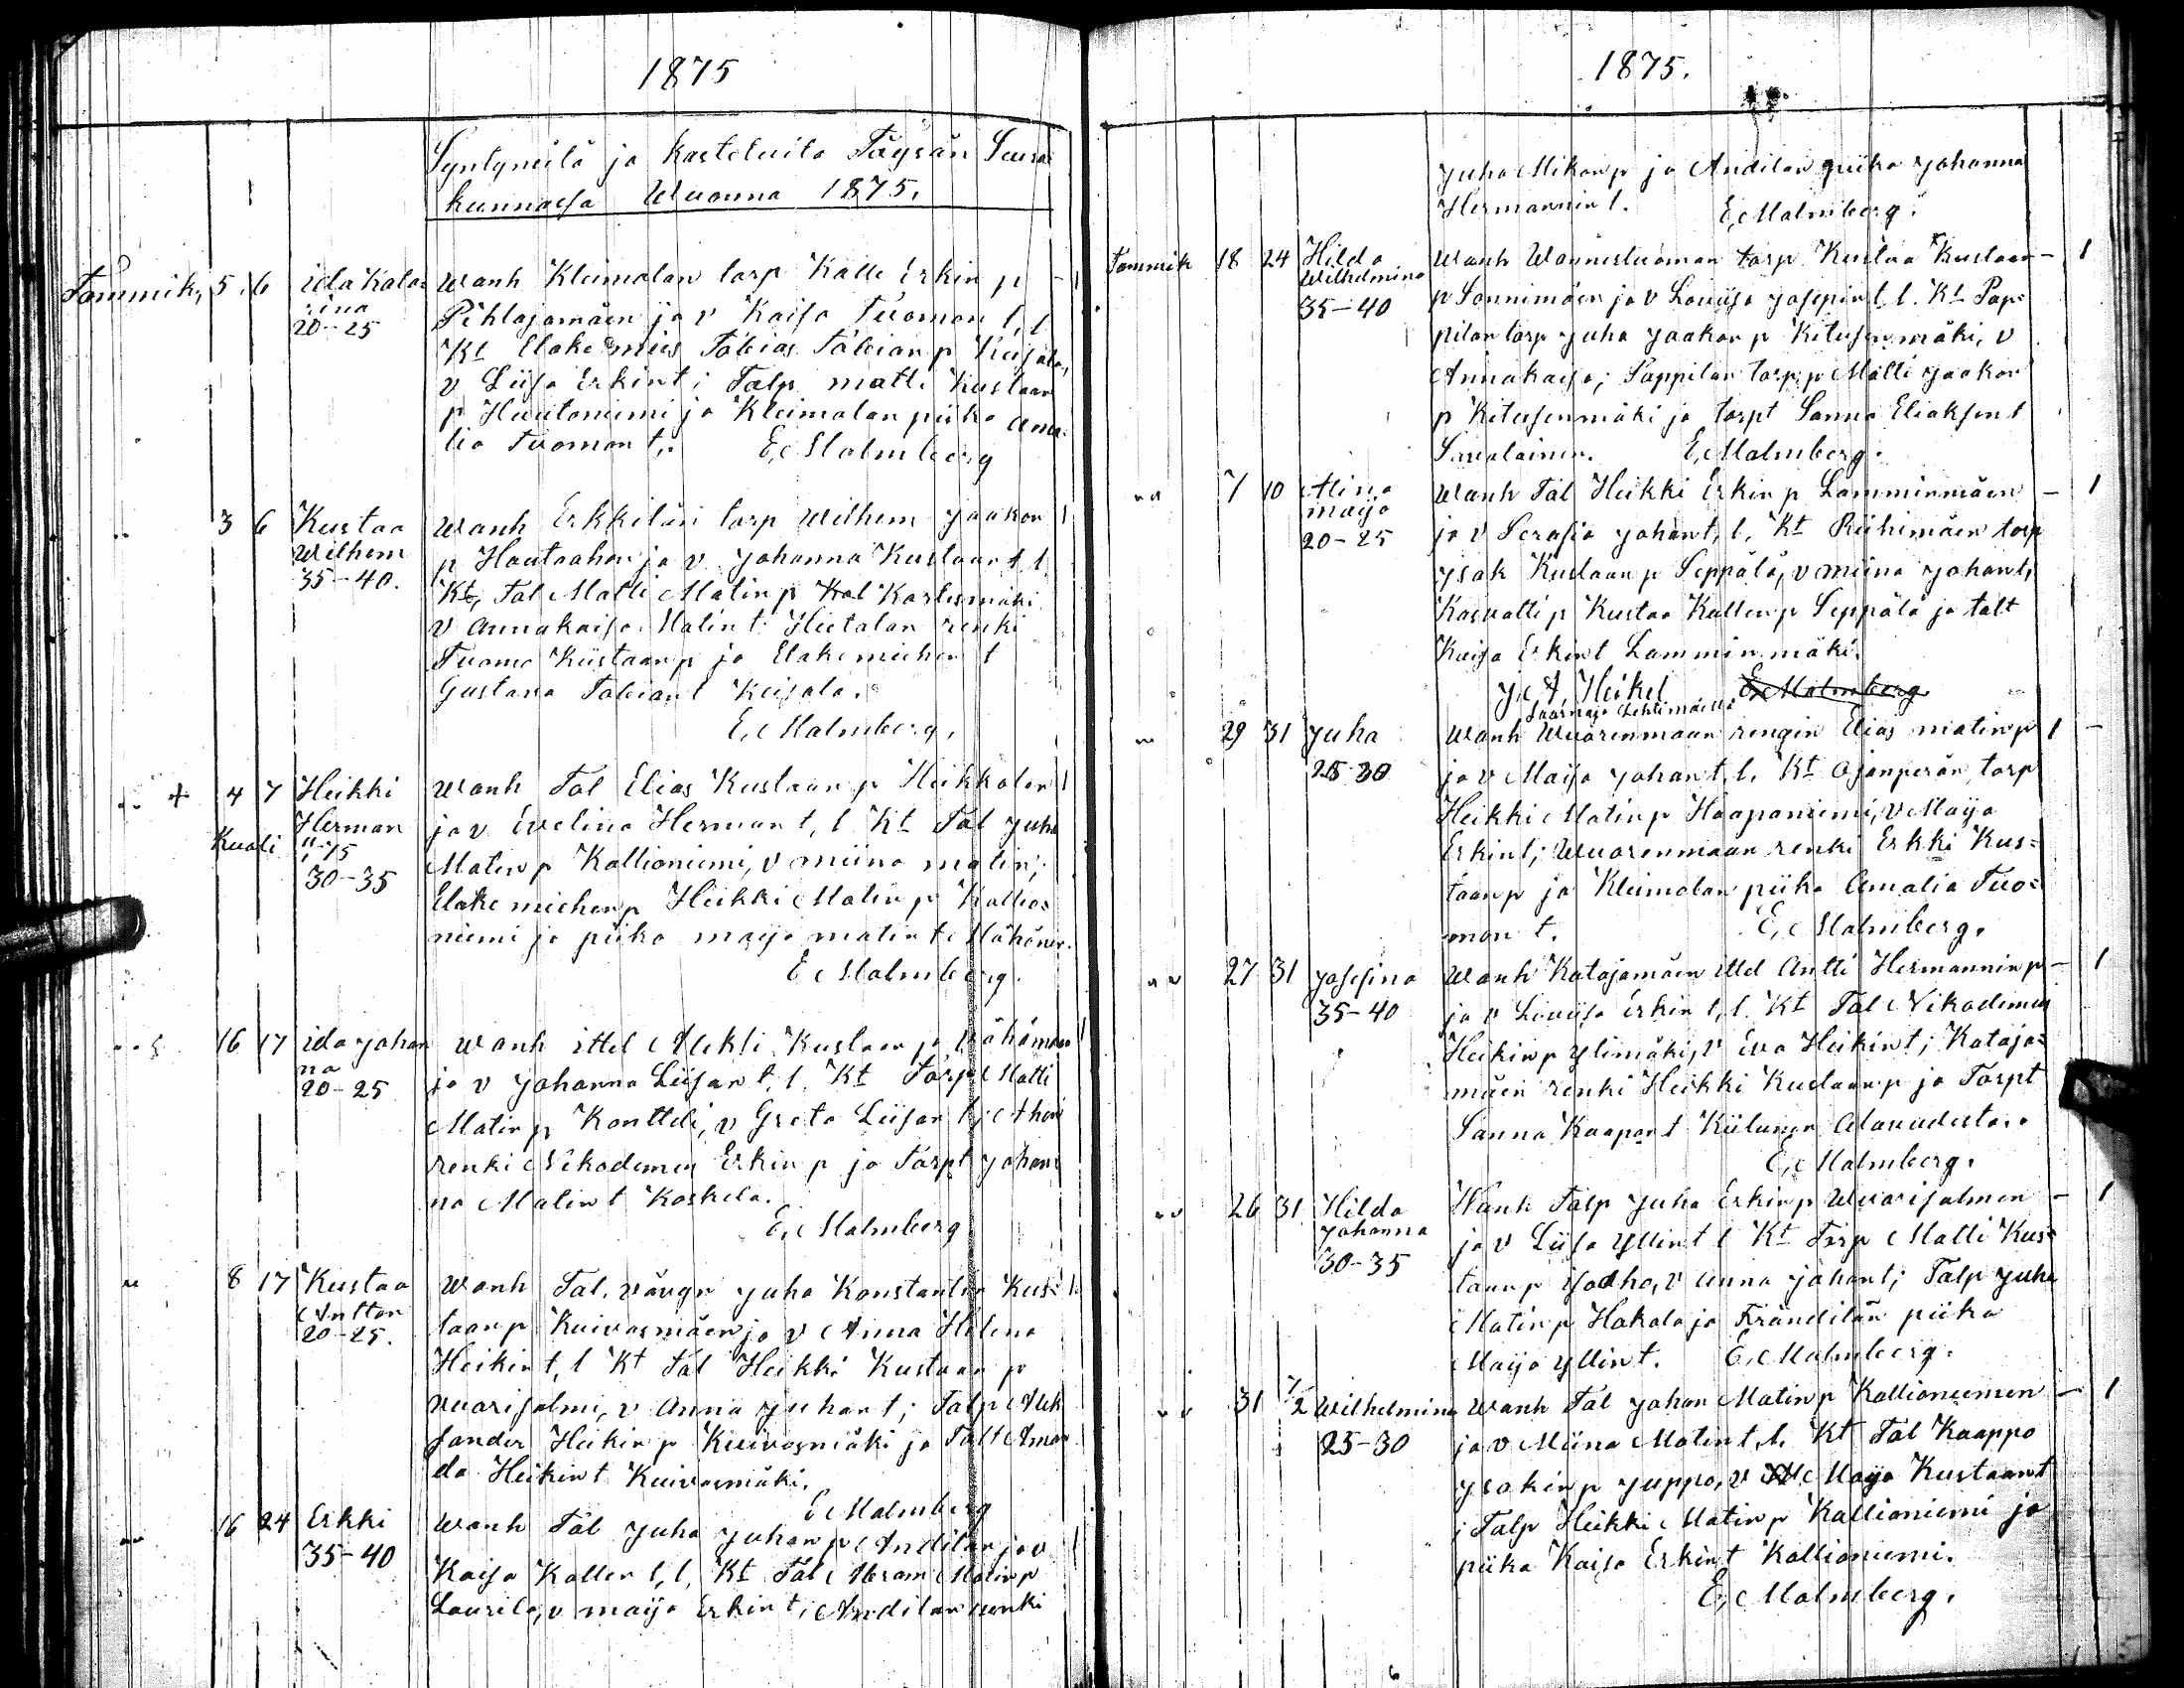 1875
Syntyneitä ja kasteluita Töysän Seura
kunnassa Wuonna 1875.
Tammik, 5 6 ida Kata= Wanh Kleimolan torp Kalle Erkin p - 1
rina Pihlajamäen ja v Kaisa Tuoman t, l
20-25 Kt Eläke mies Tobias Tobian p Keisala,
v Liisa Erkint; Talp matti Kustaan
p Huutoniemi ja Kleimolan piika ama=
lia Tuoman t,. E, Malmberg
" 3 6 Kustaa Wanh Erkkilän torp Wilhem Jaakon 1
Wilhem p Hautaahon ja v Johanna Kustaan t l
35-40. Kt, Tal Matti Matin p Kal Karlusmäki
v annakaisa Matin t Hietalan renki
Tuomo Kustaan p ja Eläkemiehen t
Gustava Tobiant Keisala.
E, Malmberg,
" + 4 7 Heikki Wanh Tal Elias Kustaan p Heikkolan 1
Herman ja v Evelina Herman t, l Kt Tal Juha
Kuoli "-75 Matin p Kallioniemi, v miina matin;
30-35 Eläke miehen p Heikki Matin p Kallio=
niemi ja piika maija matin t Mähönen.
E Malmberg.
" 16 17 ida johan Wanh ittel Aleksi Kustaan p Wähämäen 1
na ja v Johanna Liisan t, l. Kt Torp Matti
20-25 Matin p Kontteli, v Greta Liisan t;
renki Nikodemus Erkin p ja Torpt Johan=
na Matin t Koskela.
E, Malmberg
" 8 17 Kustaa Wanh Tal. vävyn Juha Konstantin Kus= 1
Anttan taan p Kuivasmäen ja v Anna Helena
20-25. Heikin t, l Kt Tal Heikki Kustaan p
Wuorisalmi, v Anna Juhan t; Talp Alek
sander Heikin p Kuivasmäki ja Talt Aman
da Heikin t Kuivasmäki.
E Malmberg
" 16 24 Erkki Wanh Tal Juha Juhan p Andilan ja v 1
35-40 Kaisa Kallen t, l, Kt Tal Abram Matin p
Laurila, v maija Erkin t; Andilan renki
1875.
Juha Mikan p ja Andilan piika Johanna
Hermannin t. E, Malmberg.
Tammik 18 24 Hilda Wanh Wannesluoman torp Kustaa Kustaan - 1
Wilhelmina p Sannimäen ja v Loviisa Josepin t, l. Kt Pap=
35-40 pilan torp Juha Jaakon p Kitusenmäki, v
Annakaisa; Pappilan torp p Matti Jaakon
p Kitusenmäki ja torpt Sanna Eliaksen t
Savolainen. E, Malmberg.
" 7 10 Alina Wanh Tal Heikki Erkin p Lamminmäen - 1
maija ja v Serafia Johant, l, Kt Riihimäen torp
20-25 Isak Kustaan p Seppälä, v miina Johant,
Kasvatti p Kustaa Kallen p Seppälä ja talt
Kaisa Erkint Lamminmäki.
J. A. Heikel E, Malmberg
Saarnaja Lehtimäellä
" 29 31 Juha Wanh Wuorenmaan rengin Elias matin p 1 -
25-30 ja v Maija Johan t, l. Kt Ojanperän torp
Heikki Matin p Haapaniemi, v Maija
Erkint; Wuorenmaan renki Erkki Kus=
taan p ja Kleimolan piika Amalia Tuo=
man t. E, Malmberg.
" 27 31 Josefina Wanh Katajamäen ittel Antti Hermannin p - 1
35-40 ja v Loviisa Erkin t, l. Kt Tal Nikodemus
Heikin p Ylimäki, v Eva Heikint; Kataja=
mäen renki Heikki Kustaan p ja Torpt
Sanna Kaapont Kiilunen Alavudesta.
E, Malmberg.
" 26 31 Hilda Wanh Talp Juha Erkin p Wuorisalmen - 1
Johanna ja v Liisa Yllint l Kt Torp Matti Kus=
30-35 taan p Isoaho, v Anna Johant; Talp Juha
Matin p Hakola ja Frändilän piika
Maija Yllint. E, Malmberg.
" 31 1/2 Wilhelmina Wanh Tal Johan Matin p Kallioniemen - 1
25-30 ja v Miina Matint, l. Kt Tal Kaappo
Isakin p Juppo, v Maija Kustaant
; Talp Heikki Matin p Kallioniemi ja
piika Kaisa Erkint Kallioniemi.
E, Malmberg.